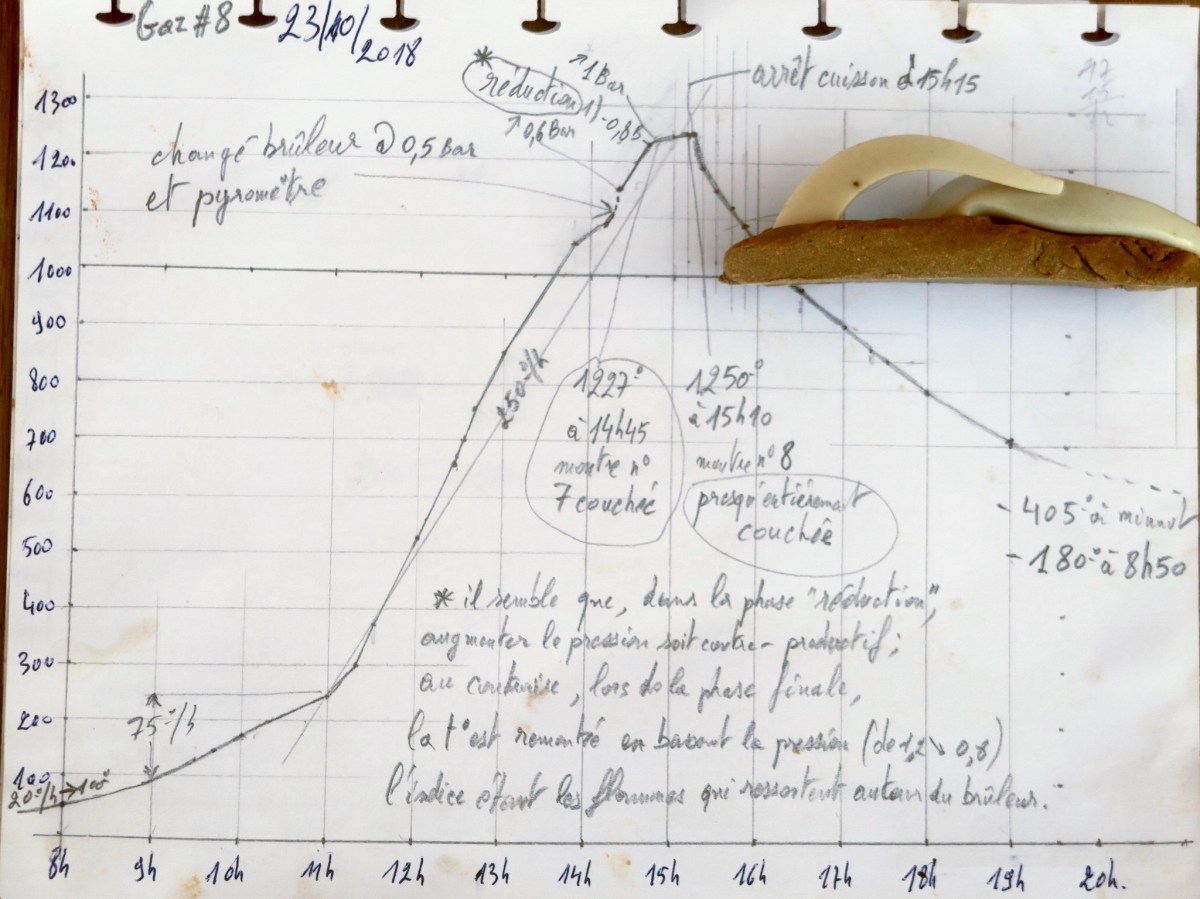 Gaz #8 23/10/2018
* réduction
↗1 Bar
1)-0,8B
↗0,6 Bar
arrêt cuisson à 15h15
changé brûleur à 0,5 Bar
et pyromètre
1300
1200
1100
1000
900
800
700
600
500
400
300
200
100
250°/h
1227°
à 14h45
montre n°
7 couchée
1250°
à 15h10
montre n° 8
presqu'entièrement
couchée
- 405° à minuit
- 180° à 8h50
75°/h
20°/h → 100°
* il semble que, dans la phase "réduction",
augmenter la pression soit contre-productif ;
au contraire, lors de la phase finale,
la t° est remontée en baissant la pression (de 1,2 ↘ 0,8)
l'indice étant les flammes qui ressortent autour du brûleur.
8h 9h 10h 11h 12h 13h 14h 15h 16h 17h 18h 19h 20h.